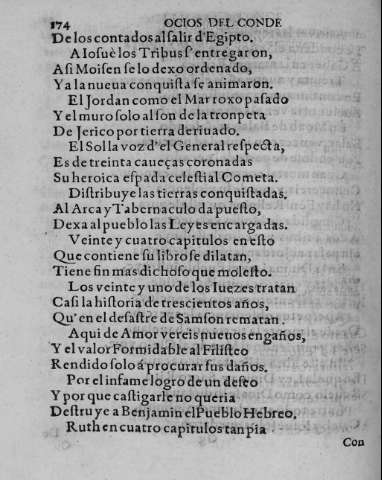 174 OCIOS DEL CONDE
De los contados al salir d'Egipto.
A Iosuè los Tribus s'entregaron,
Asi Moisen se lo dexo ordenado,
Y a la nueua conquista se animaron.
El Jordan como el Mar roxo pasado
Y el muro solo al son de la tronpeta
De Jerico por tierra deriuado.
El Sol la voz d'el General respecta,
Es de treinta caueças coronadas
Su heroica espada celestial Cometa.
Distribuye las tierras conquistadas.
Al Arca y Tabernaculo da puesto,
Dexa al pueblo las Leyes encargadas.
Veinte y cuatro capitulos en esto
Que contiene su libro se dilatan,
Tiene fin mas dichoso que molesto.
Los veinte y uno de los Iuezes tratan
Casi la historia de trescientos años,
Qu'en el desastre de Samson rematan.
Aqui de Amor vereis nueuos engaños,
Y el valor Formidable al Filisteo
Rendido solo á procurar sus daños.
Por el infame logro de un deseo
Y por que castigarle no queria
Destruye a Benjamin el Pueblo Hebreo,
Ruth en cuatro capitulos tan pia
Con